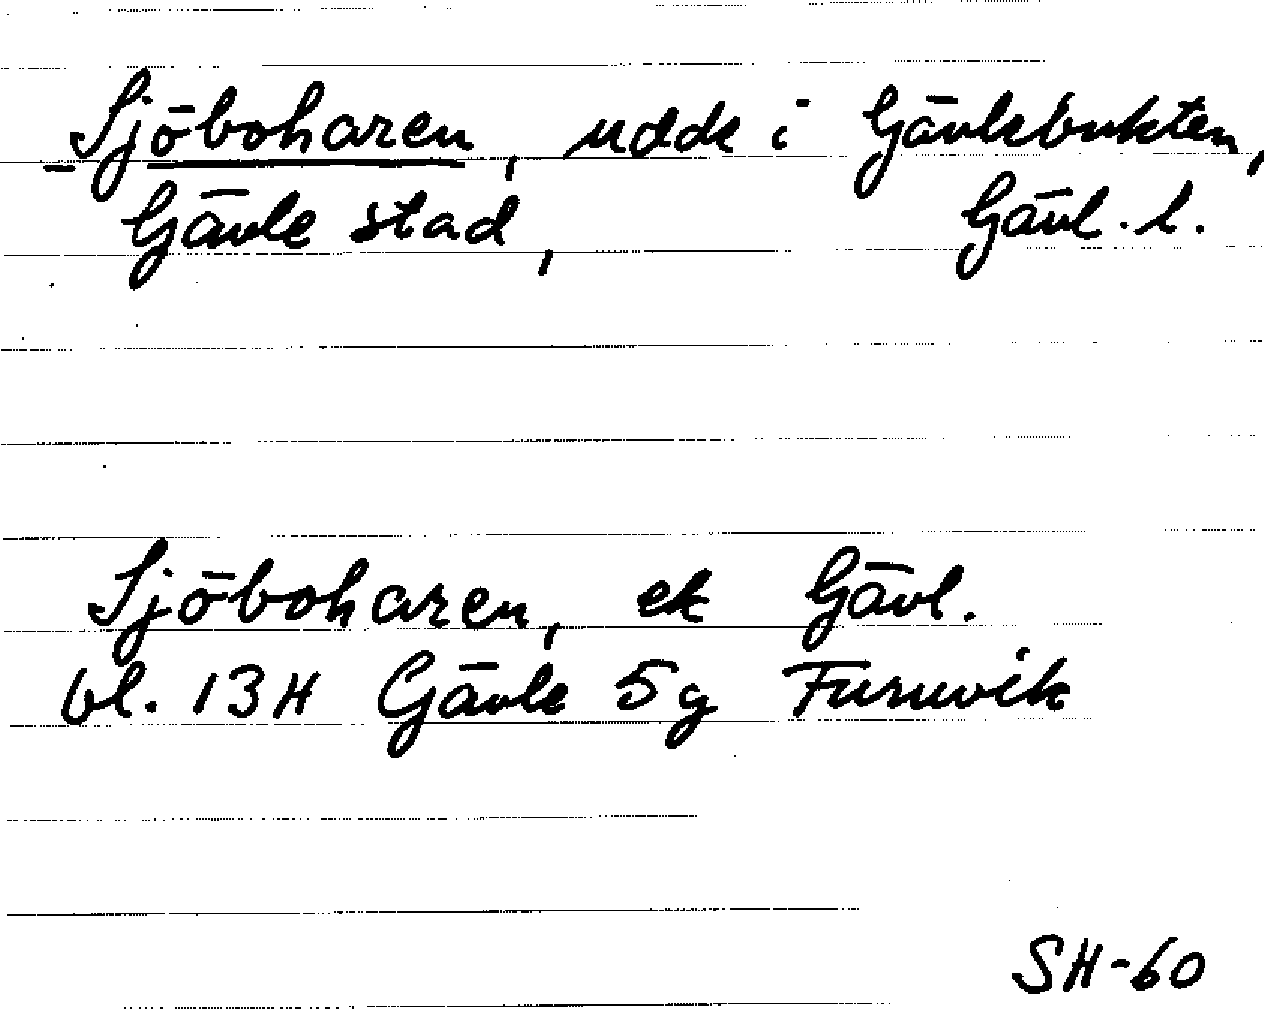 Sjöboharen, udde i Gävlebukten,
Gävle stad, Gävl. l.
Sjöboharen, ek Gävl.
bl. 13H Gävle 5g Furuvik
SH-60